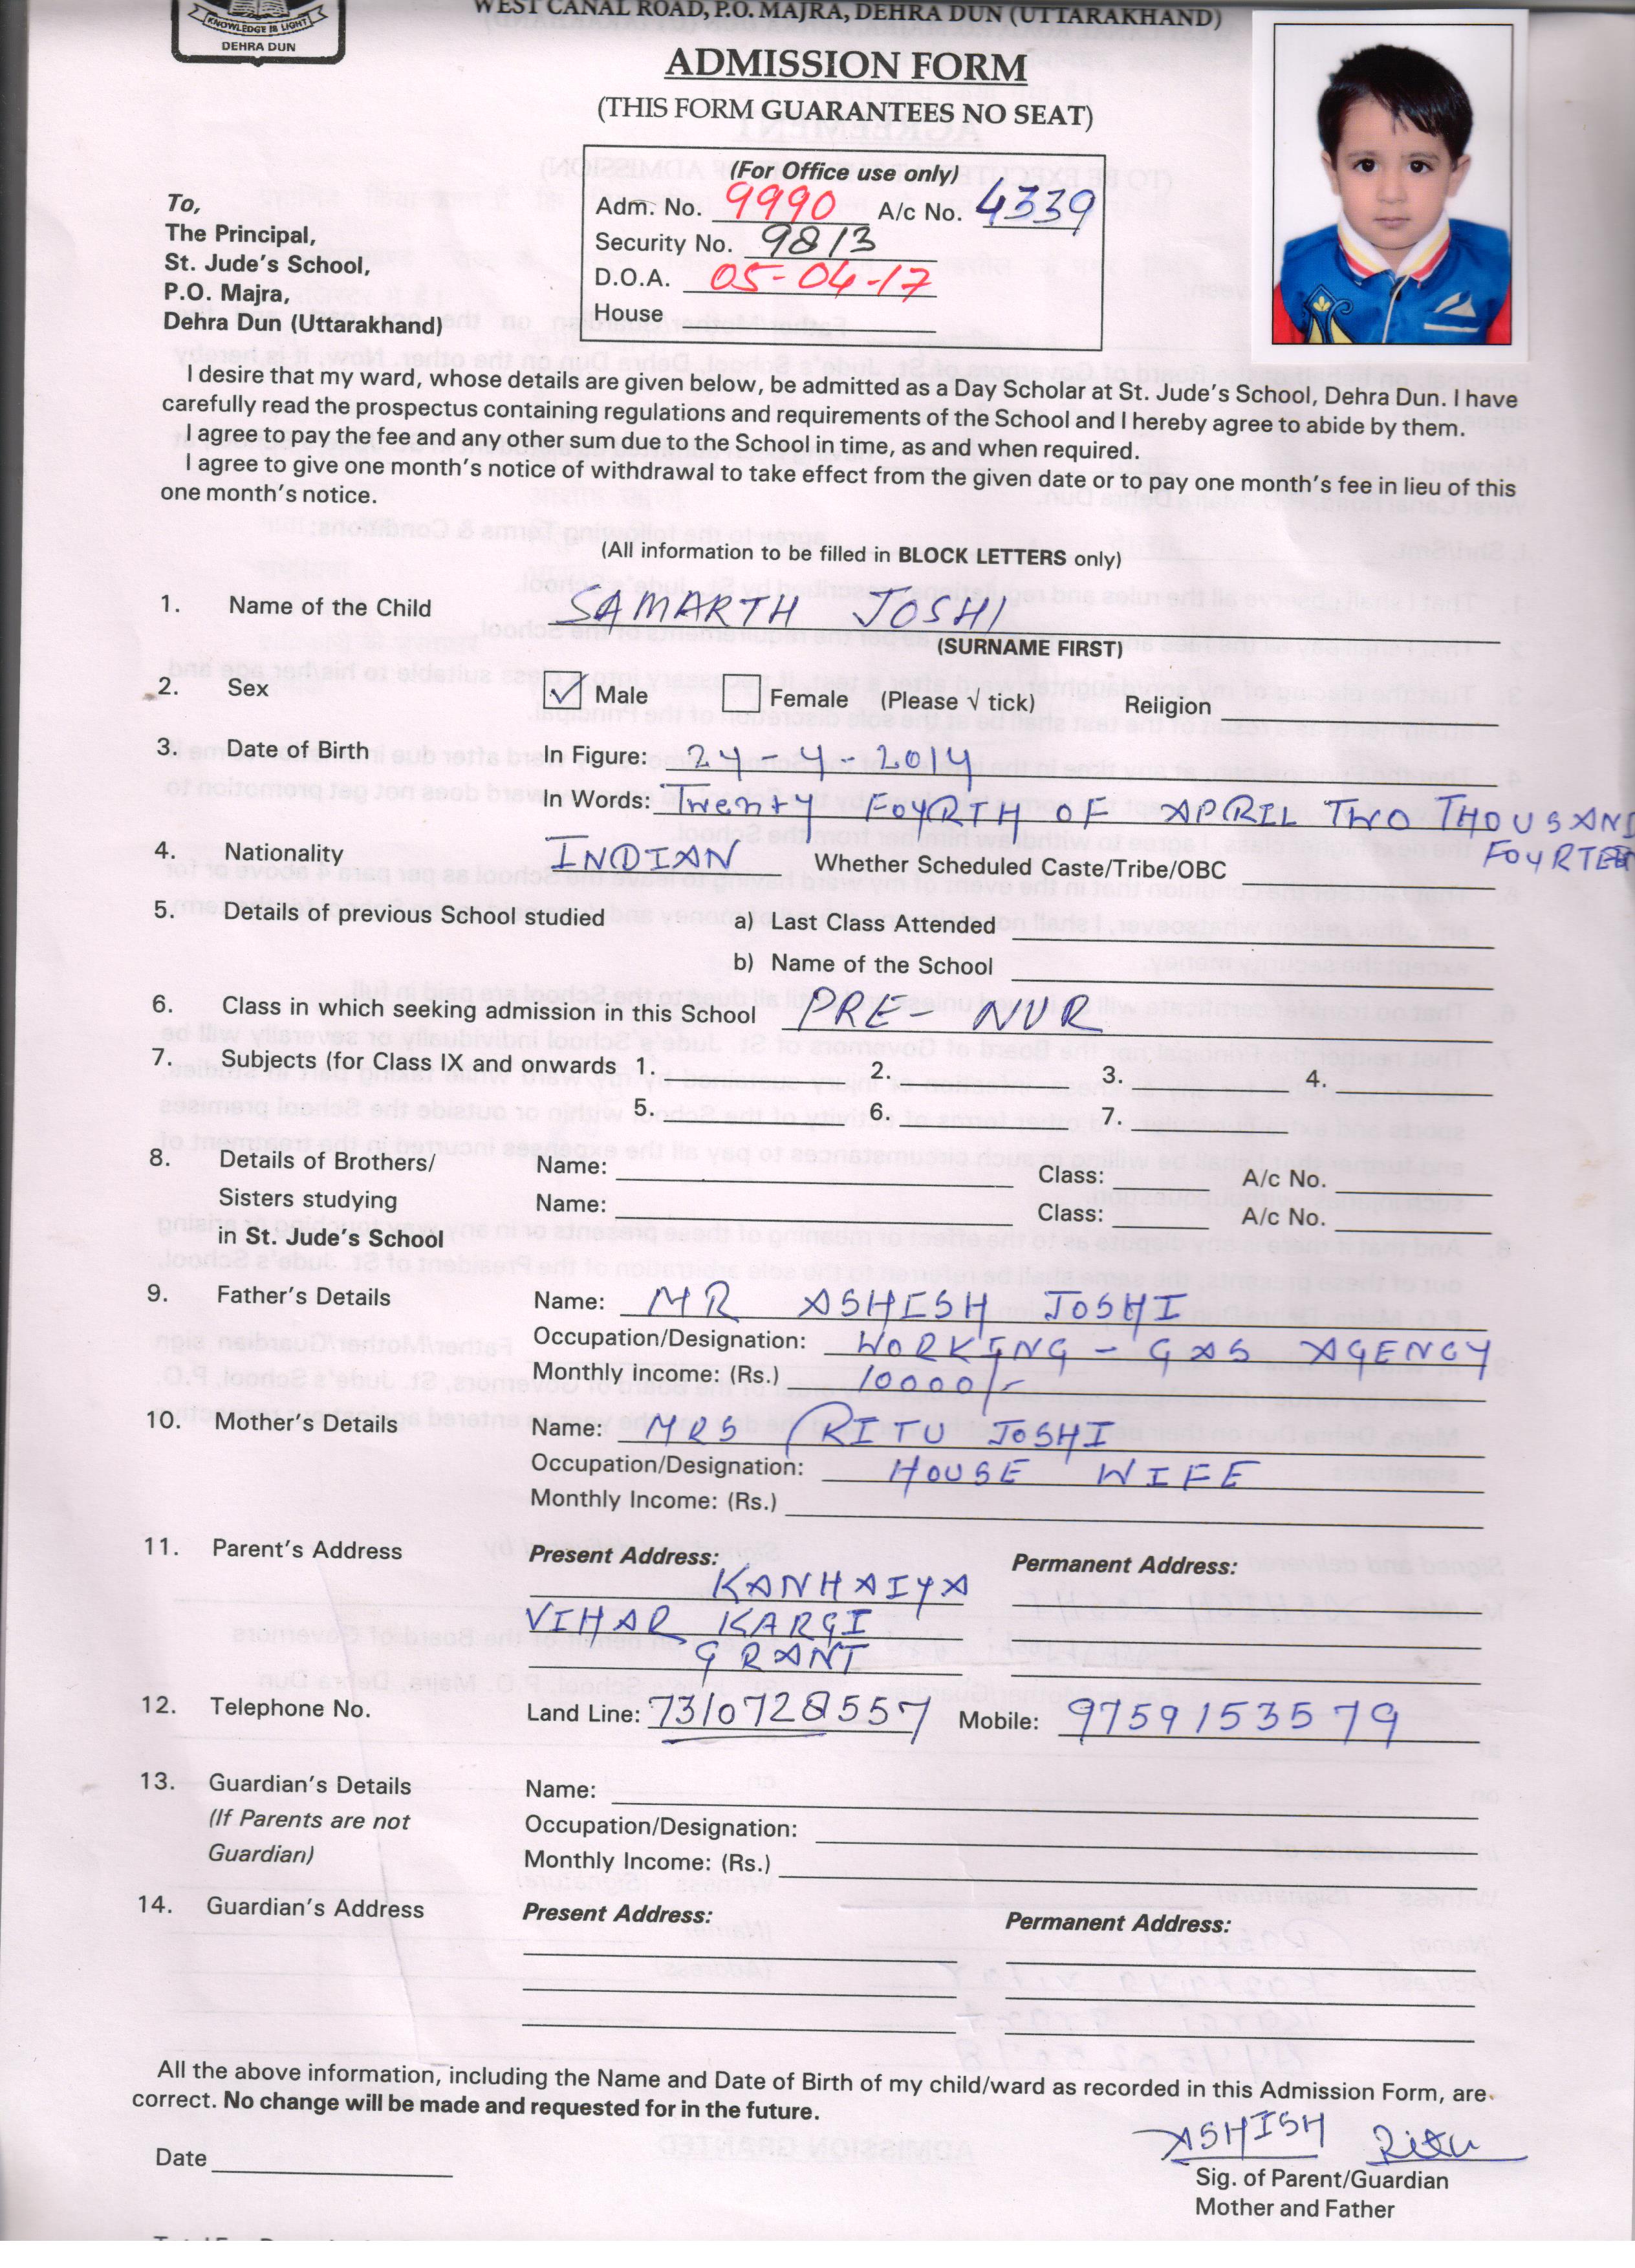 KNOWLEDGE IS LIGHT
DEHRA DUN
WEST CANAL ROAD, P.O. MAJRA, DEHRA DUN (UTTARAKHAND)
ADMISSION FORM
(THIS FORM GUARANTEES NO SEAT)
(For Office use only)
Adm. No. 9990 A/c No. 4339
Security No. 9813
D.O.A. 05-04-17
House
To,
The Principal,
St. Jude's School,
P.O. Majra,
Dehra Dun (Uttarakhand)
I desire that my ward, whose details are given below, be admitted as a Day Scholar at St. Jude's School, Dehra Dun. I have
carefully read the prospectus containing regulations and requirements of the School and I hereby agree to abide by them.
I agree to pay the fee and any other sum due to the School in time, as and when required.
I agree to give one month's notice of withdrawal to take effect from the given date or to pay one month's fee in lieu of this
one month's notice.
(All information to be filled in BLOCK LETTERS only)
1. Name of the Child SAMARTH JOSHI
(SURNAME FIRST)
2. Sex ✓ Male Female (Please √ tick) Religion
3. Date of Birth In Figure: 24-4-2014
In Words: Twenty FOYRTH OF APRIL TWO THOUSAND
FOYRTEEN
4. Nationality INDIAN Whether Scheduled Caste/Tribe/OBC
5. Details of previous School studied a) Last Class Attended
b) Name of the School
6. Class in which seeking admission in this School PRE- NUR
7. Subjects (for Class IX and onwards 1. 2. 3. 4.
5. 6. 7.
8. Details of Brothers/ Name: Class: A/c No.
Sisters studying Name: Class: A/c No.
in St. Jude's School
9. Father's Details Name: MR ASHESH JOSHI
Occupation/Designation: WORKING - GAS AGENCY
Monthly Income: (Rs.) 10000/-
10. Mother's Details Name: MRS RITU JOSHI
Occupation/Designation: HOUSE WIFE
Monthly Income: (Rs.)
11. Parent's Address Present Address: Permanent Address:
KANHAIYA
VIHAR KARGI
GRANT
12. Telephone No. Land Line: 7310728557 Mobile: 9759153579
13. Guardian's Details Name:
(If Parents are not Occupation/Designation:
Guardian) Monthly Income: (Rs.)
14. Guardian's Address Present Address: Permanent Address:
All the above information, including the Name and Date of Birth of my child/ward as recorded in this Admission Form, are
correct. No change will be made and requested for in the future.
ASHISH Ritu
Date Sig. of Parent/Guardian
Mother and Father